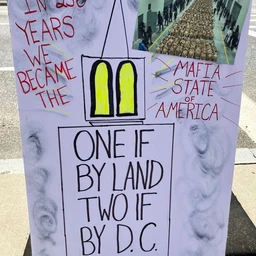 IN 250
YEARS
WE
BECAME
THE
MAFIA
STATE
OF
AMERICA
ONE IF
BY LAND
TWO IF
BY D.C.